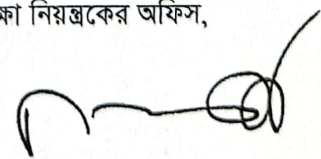 নিয়ন্ত্রকের অফিস,